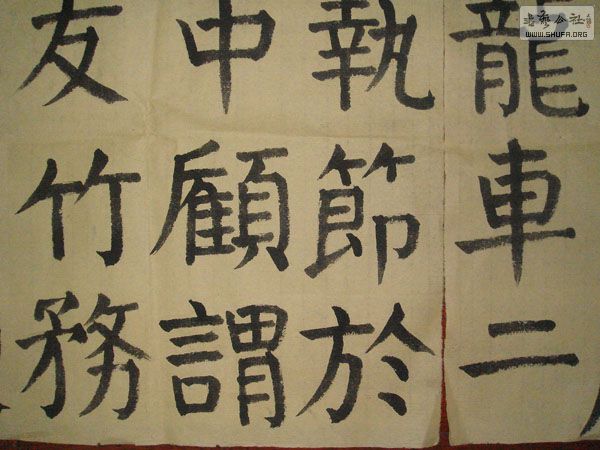 龍車二
執節於
中顧謂
友竹務
書法公社
WWW.SHUFA.ORG